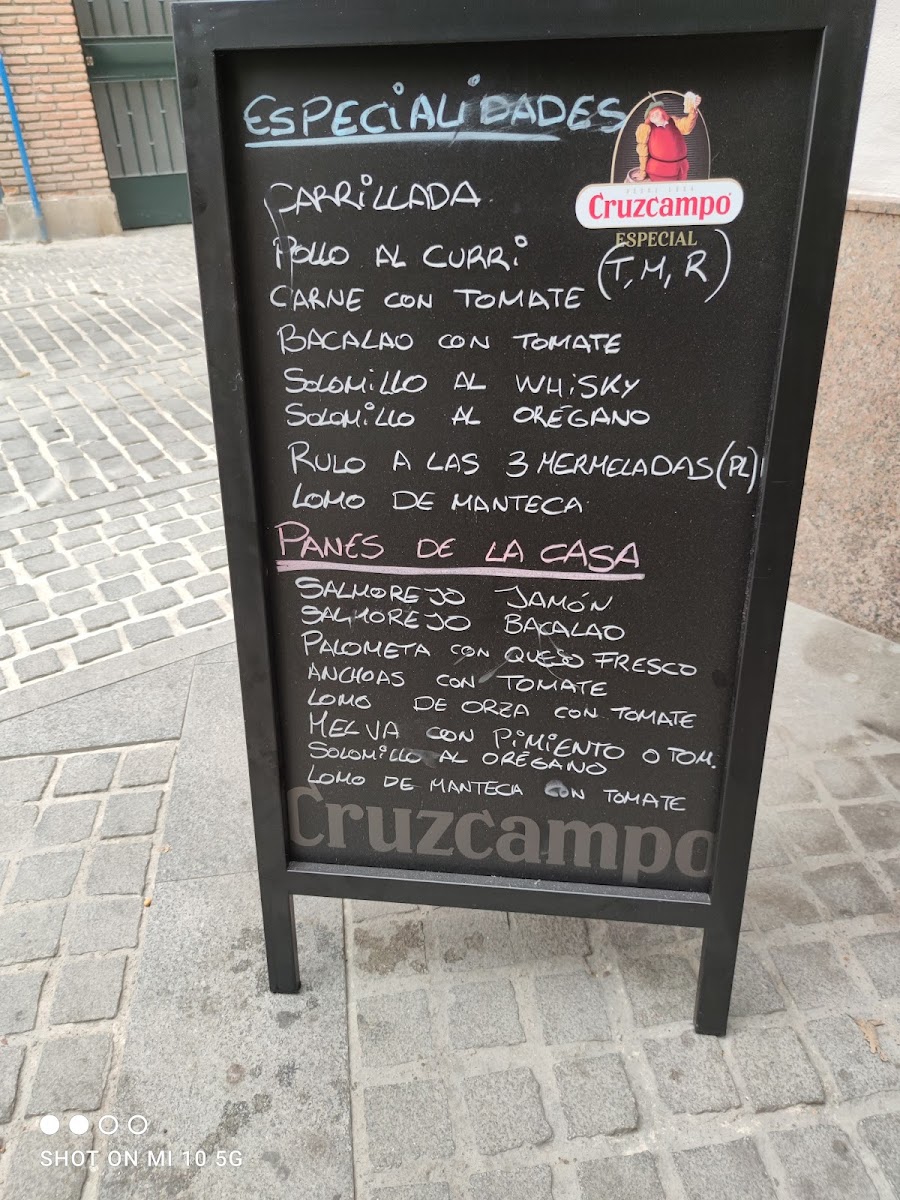 ESPECIALIDADES
Cruzcampo
ESPECIAL
CARRILLADA
POLLO AL CURRI
(T, M, R)
CARNE CON TOMATE
BACALAO CON TOMATE
SOLOMILLO AL WHISKY
SOLOMILLO AL ORÉGANO
RULO A LAS 3 MERMELADAS (PL)
LOMO DE MANTECA
PANES DE LA CASA
SALMOREJO JAMÓN
SALMOREJO BACALAO
PALOMETA CON QUESO FRESCO
ANCHOAS CON TOMATE
LOMO DE ORZA CON TOMATE
MELVA CON PIMIENTO O TOM.
SOLOMILLO AL ORÉGANO
LOMO DE MANTECA CON TOMATE
Cruzcampo
SHOT ON MI 10 5G